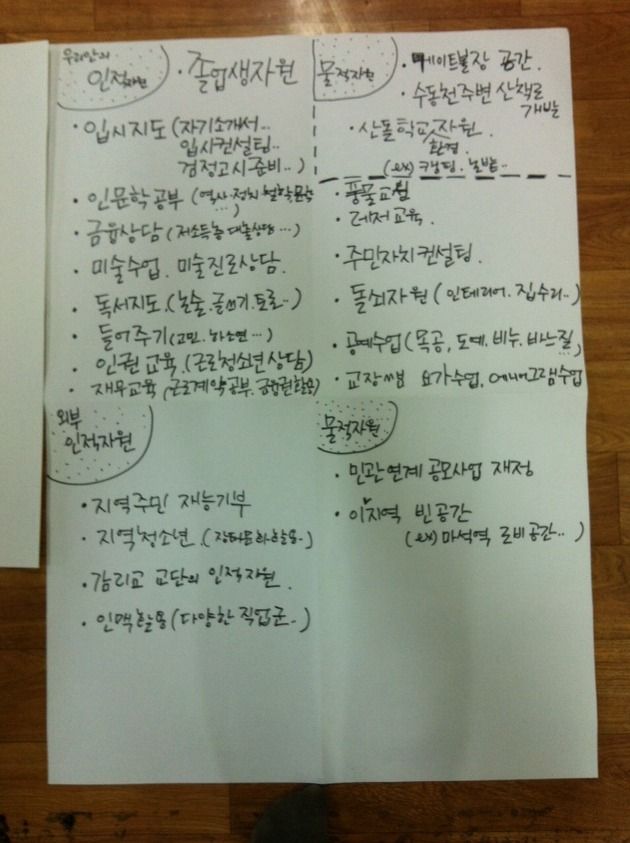 우리안의
인적자원
· 졸업생자원
· 입시지도 (자기소개서..
입시컨설팅..
검정고시준비..)
· 인문학공부 (역사·정치 철학문학
...)
· 금융상담 (저소득층 대출상담...)
· 미술수업. 미술진로상담.
· 독서지도. (논술. 글쓰기. 토론..)
· 들어주기 (고민. 하소연...)
· 인권교육. (근로청소년상담)
· 재무교육 (근로계약공부. 금융권활용)
물적자원
· 게이트볼장 공간.
· 수동천주변 산책로
개발
· 산돌학교 환경 자원.
(ex) 캠핑. 놀방..
· 풍물교실
· 레저교육.
· 주민자치컨설팅.
· 돌쇠자원 (인테리어. 집수리..)
· 공예수업 (목공, 도예. 비누. 바느질,
...)
· 교장쌤 요가수업, 에니어그램수업
외부
인적자원
· 지역주민 재능기부
· 지역청소년. (장터문화활용..)
· 감리교 교단의 인적자원.
· 인맥활용 (다양한 직업군..)
물적자원
· 민관연계 공모사업 재정
· 이지역 빈공간
(ex) 마석역 로비공간..)